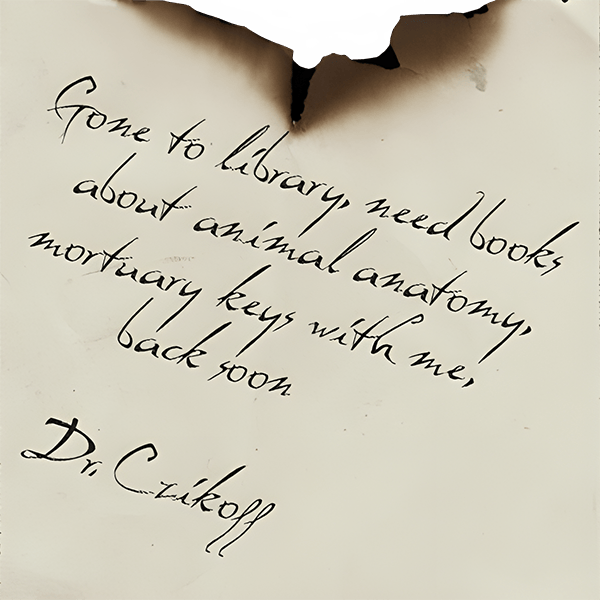 Gone to library, need books
about animal anatomy,
mortuary keys with me,
back soon
Dr. Czikoff